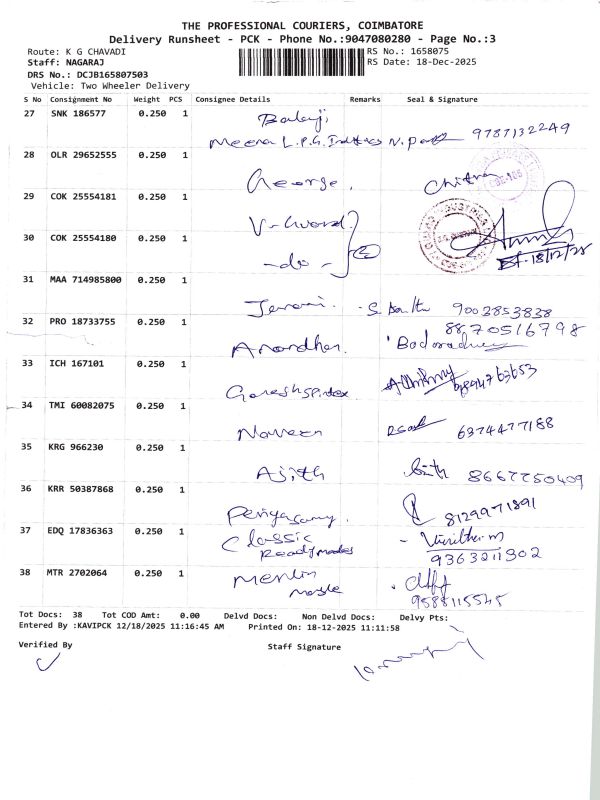 THE PROFESSIONAL COURIERS, COIMBATORE
Delivery Runsheet - PCK - Phone No.:9047080280 - Page No.:3
Route: K G CHAVADI
RS No.: 1658075
Staff: NAGARAJ
RS Date: 18-Dec-2025
DRS No.: DCJB165807503
Vehicle: Two Wheeler Delivery
S No Consignment No Weight PCS Consignee Details Remarks Seal & Signature
27 SNK 186577 0.250 1 Balaji
Meena L.P.G. 9787132249
28 OLR 29652555 0.250 1 George. Chitra
29 COK 25554181 0.250 1 V-Guard
30 COK 25554180 0.250 1 -do- 2
18/12/25
31 MAA 714985800 0.250 1 9003853838
32 PRO 18733755 0.250 1 Anandhan. 8870516798
33 ICH 167101 0.250 1 9894763653
34 TMI 60082075 0.250 1 Naveen 6374477188
35 KRG 966230 0.250 1 Ajith 8667750409
36 KRR 50387868 0.250 1 Periyasamy. 8129971891
37 EDQ 17836363 0.250 1 Classic
Readymades 9363211302
38 MTR 2702064 0.250 1 Merlin
9588115545
Tot Docs: 38 Tot COD Amt: 0.00 Delvd Docs: Non Delvd Docs: Delvy Pts:
Entered By :KAVIPCK 12/18/2025 11:16:45 AM Printed On: 18-12-2025 11:11:58
Verified By Staff Signature